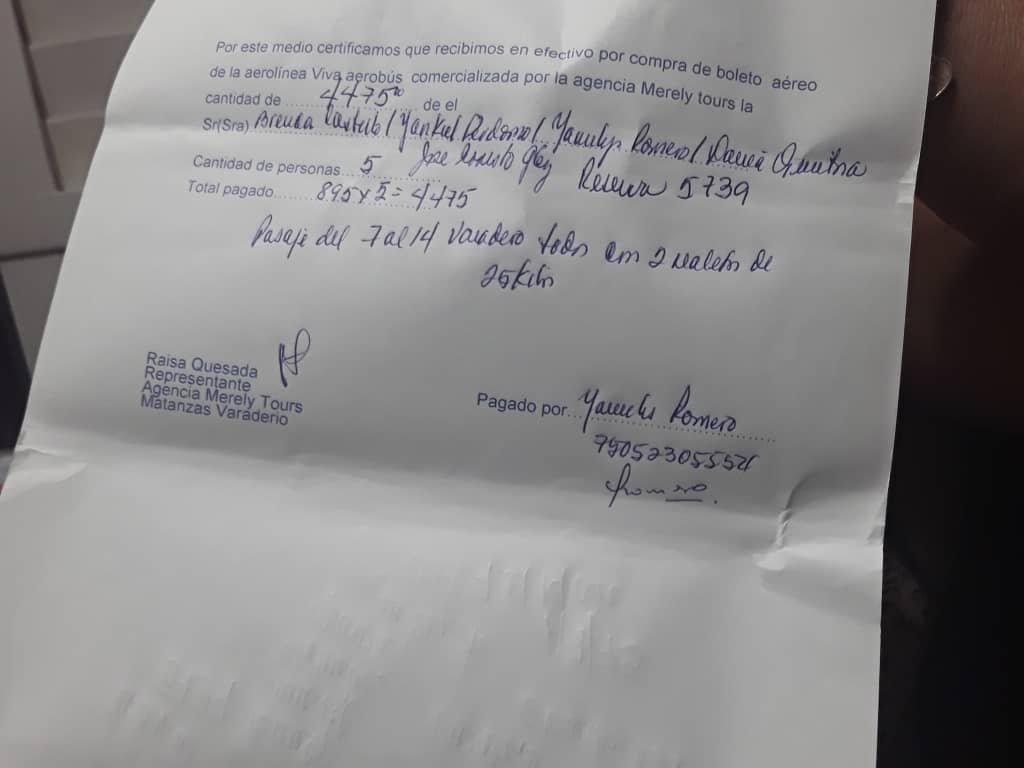 Por este medio certificamos que recibimos en efectivo por compra de boleto aéreo
de la aerolínea Viva aerobús comercializada por la agencia Merely tours la
cantidad de ....... 4475⁰⁰ ....... de el
Sr(Sra) Brenda / Yankiel Perdomo / Romero / 
Jose Ernesto Glez
Cantidad de personas... 5 Reserva 5739
Total pagado......... 895 x 5 = 4475
Pasaje del 7 al 14 Varadero todos con 2 maletas de
25 kilos
Raisa Quesada
Representante
Agencia Merely Tours
Matanzas Varaderio
Pagado por... Romero
Romero.